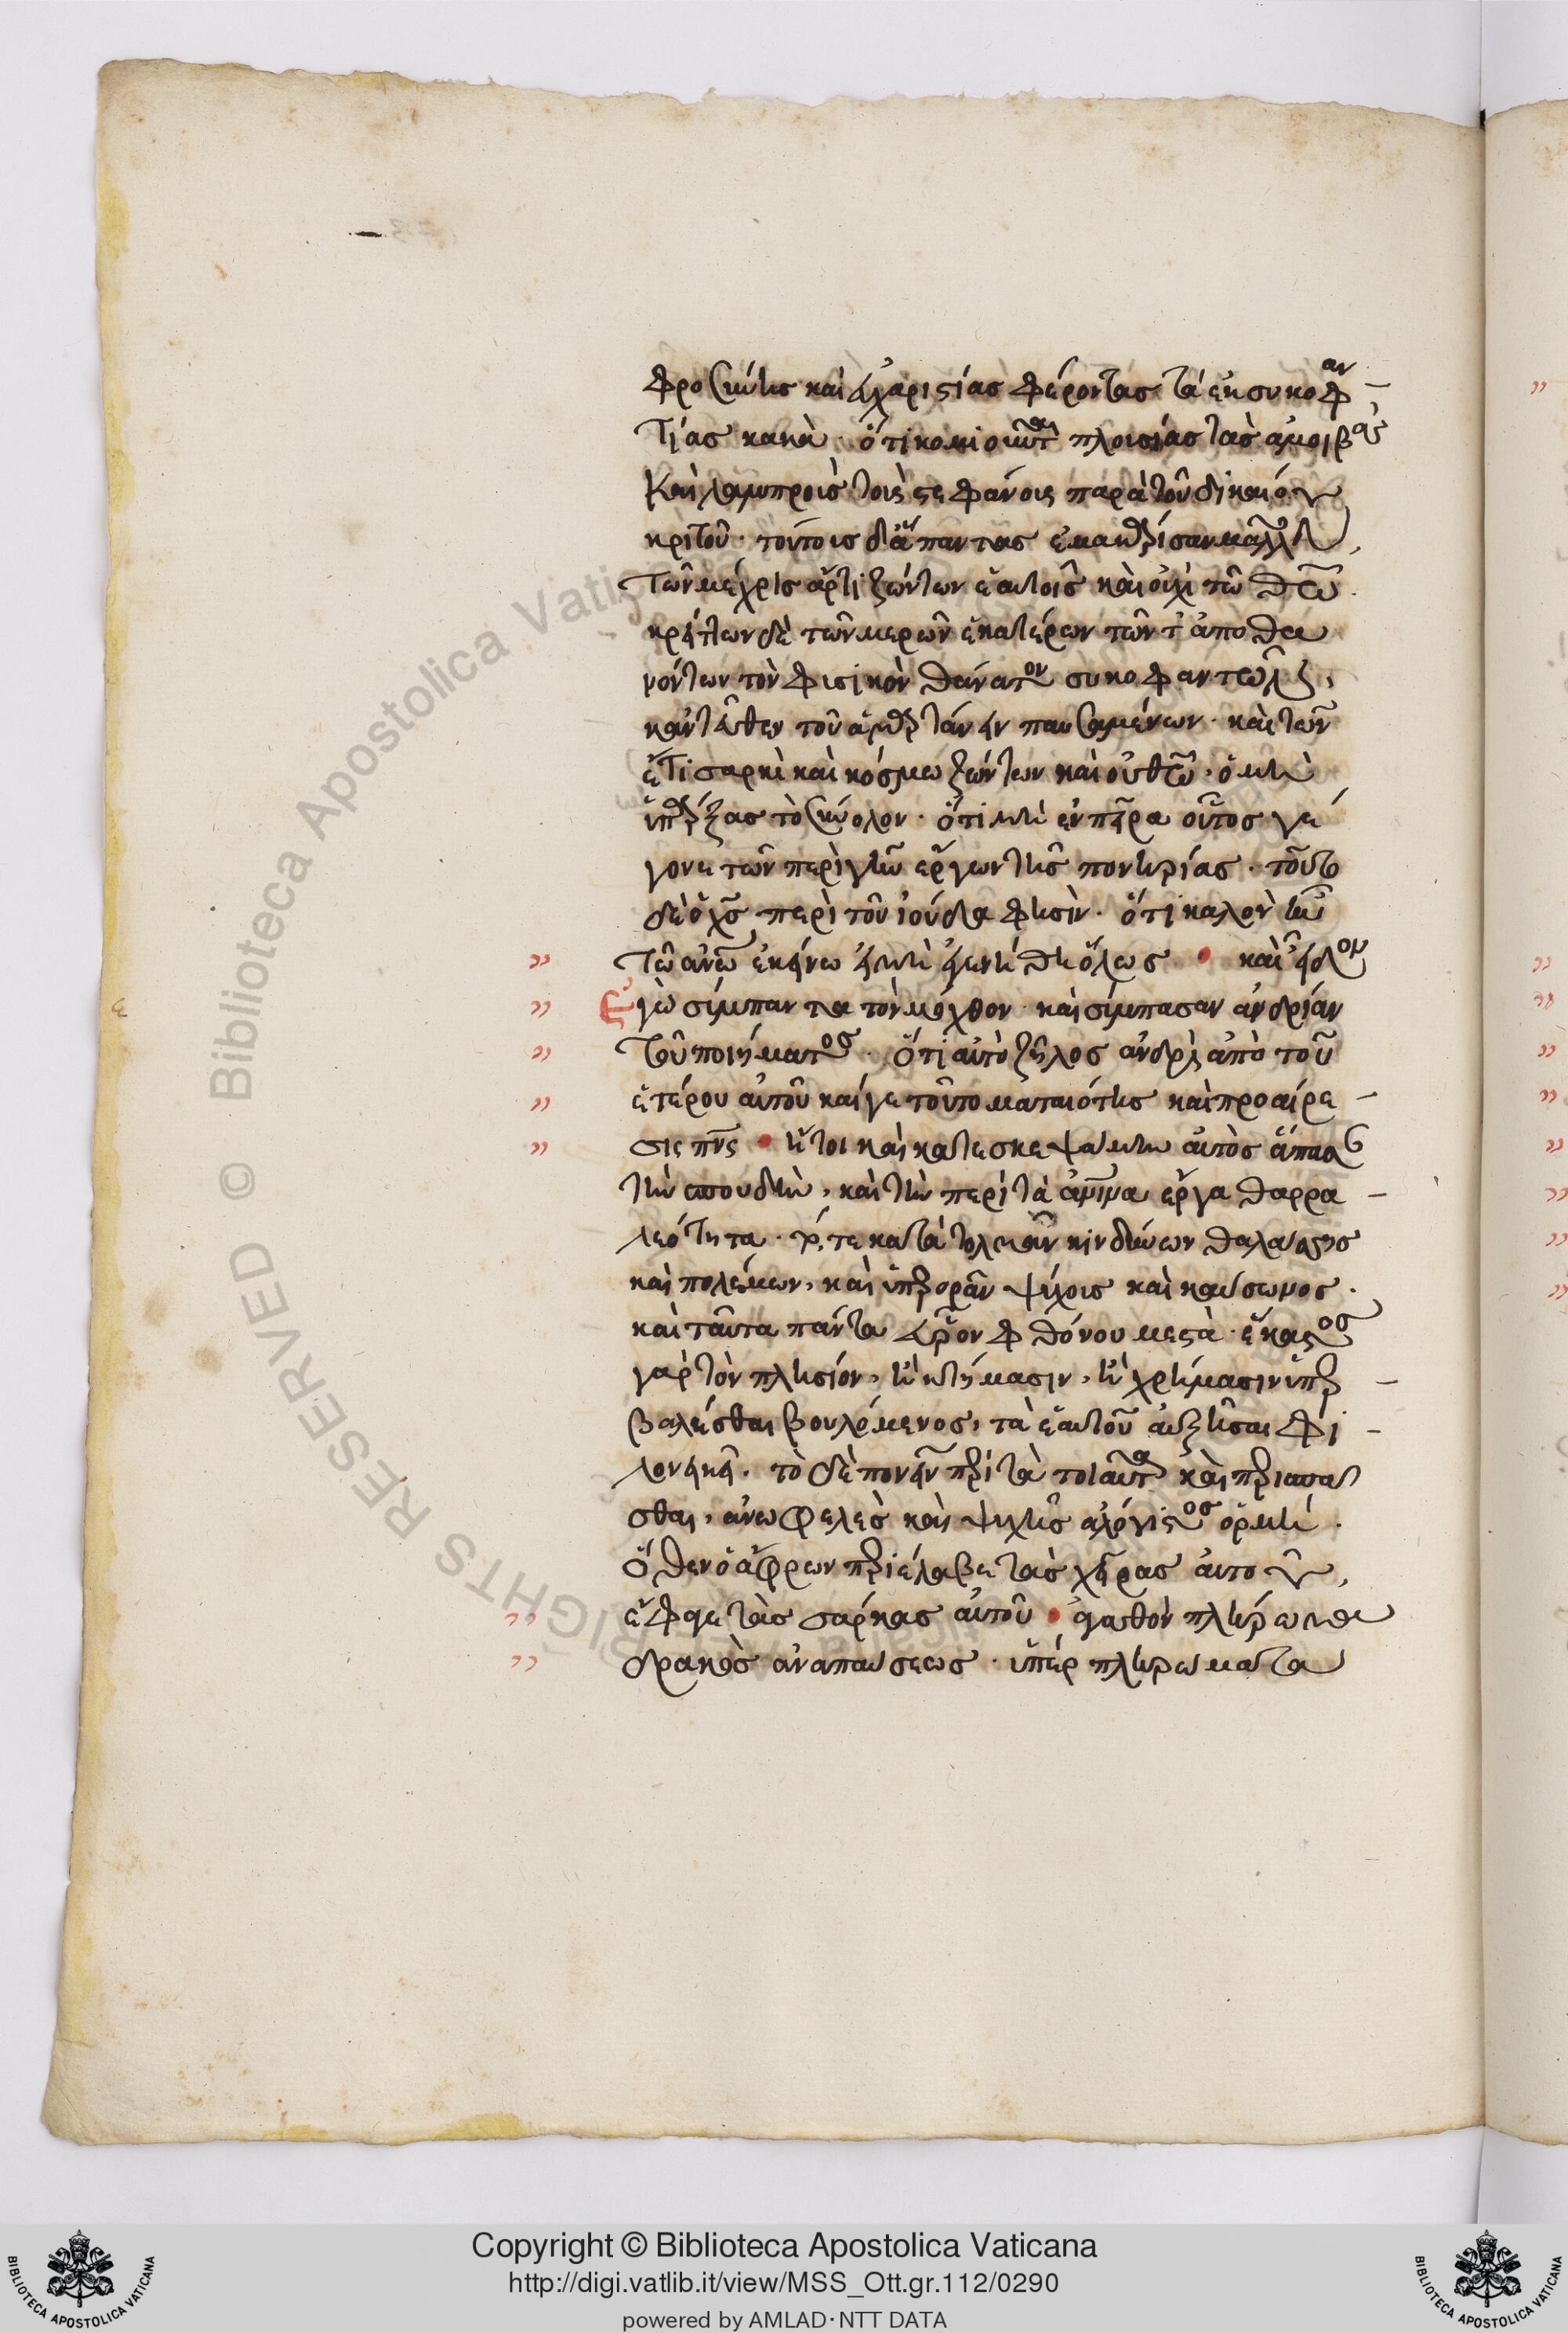 φροσύνης καὶ εὐχαριστίας φέροντας τὰ ἐκ συκοφαν
τίας κακά. ὅτι κομιοῦνται πλουσίας τὰς ἀμοιβὰς
καὶ λαμπροὺς τοὺς στεφάνους παρὰ τοῦ δικαίου
κριτοῦ. τούτους δ' ἅπαντας ἐμακάρισα μᾶλλον,
τῶν μέχρις ἄρτι ζώντων ἑαυτοῖς καὶ οὐχὶ τῷ θεῷ.
κρείττων δὲ τῶν μερῶν ἑκατέρων τῶν τε ἀποθα
νόντων τὸν φυσικὸν θάνατον
κἀντεῦθεν τοῦ ἁμαρτάνειν παυσαμένων. καὶ τῶν
ἔτι σαρκὶ καὶ κόσμῳ ζώντων καὶ οὐ θεῷ, ὁ μὴ
ὑπάρξας τὸ σύνολον. ὅτι μὴ ἐν πείρᾳ οὗτος γέ
γονε τῶν περὶ γῆν ἔργων τῆς πονηρίας. τοῦτο
δὲ ὁ χς περὶ τοῦ ἰούδα φησίν. ὅτι καλὸν ἦν
τῷ ἀνῳ ἐκείνῳ εἰ μὴ ἐγεννήθη ὅλως • καὶ εἶδον
ἐγὼ σύμπαντα τὸν μόχθον καὶ σύμπασαν ἀνδρίαν
τοῦ ποιήματος. ὅτι αὐτὸ ζῆλος ἀνδρὶ ἀπὸ τοῦ
ἑτέρου αὐτοῦ καί γε τοῦτο ματαιότης καὶ προαίρε
σις πνς • ἤτοι καὶ κατεσκεψάμην αὐτὸς ἅπασαν
τὴν σπουδὴν, καὶ τὴν περὶ τὰ ἀνόνητα ἔργα θαρρα
λεότητα. ὥστε κατατολμᾶν κινδύνων θαλάσσης
καὶ πολέμων, καὶ ὑπερορᾶν ψύχους καὶ καύσωνος.
καὶ ταῦτα πάντα εὗρον φθόνου μεστά. ἕκαστος
γὰρ τὸν πλησίον, ἢ κτήμασιν, ἢ χρήμασιν ὑπερ
βαλέσθαι βουλόμενος, τὰ ἑαυτοῦ αὐξῆσαι φι
λονεικεῖ. τὸ δὲ πονεῖν περὶ τὰ τοιαῦτα καὶ περισπᾶ
σθαι, ἀνωφελὲς καὶ ψυχῆς ἀλόγιστος ὁρμή.
ὅθεν ὁ ἄφρων περιέλαβε τὰς χεῖρας αὐτοῦ,
ἔφαγε τὰς σάρκας αὐτοῦ • ἀγαθὸν πλήρωμα
δρακὸς ἀναπαύσεως. ὑπὲρ πληρώματα
Copyright © Biblioteca Apostolica Vaticana
http://digi.vatlib.it/view/MSS_Ott.gr.112/0290
powered by AMLAD · NTT DATA